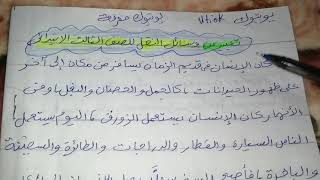 يوتيوك Utiok يوتيوك موجة
تعبير عن وسائل النقل للصف الثالث الابتدائي
كان الإنسان في قديم الزمان يسافر من مكان إلى آخر
على ظهور الحيوانات كالجمل والحصان والبغل وحتى
الأنهار كان الإنسان يستعمل الزورق، اليوم يستعمل
الناس السيارة والقطار والدراجات والطائرة والسفينة
والباخرة فأصبح السفر